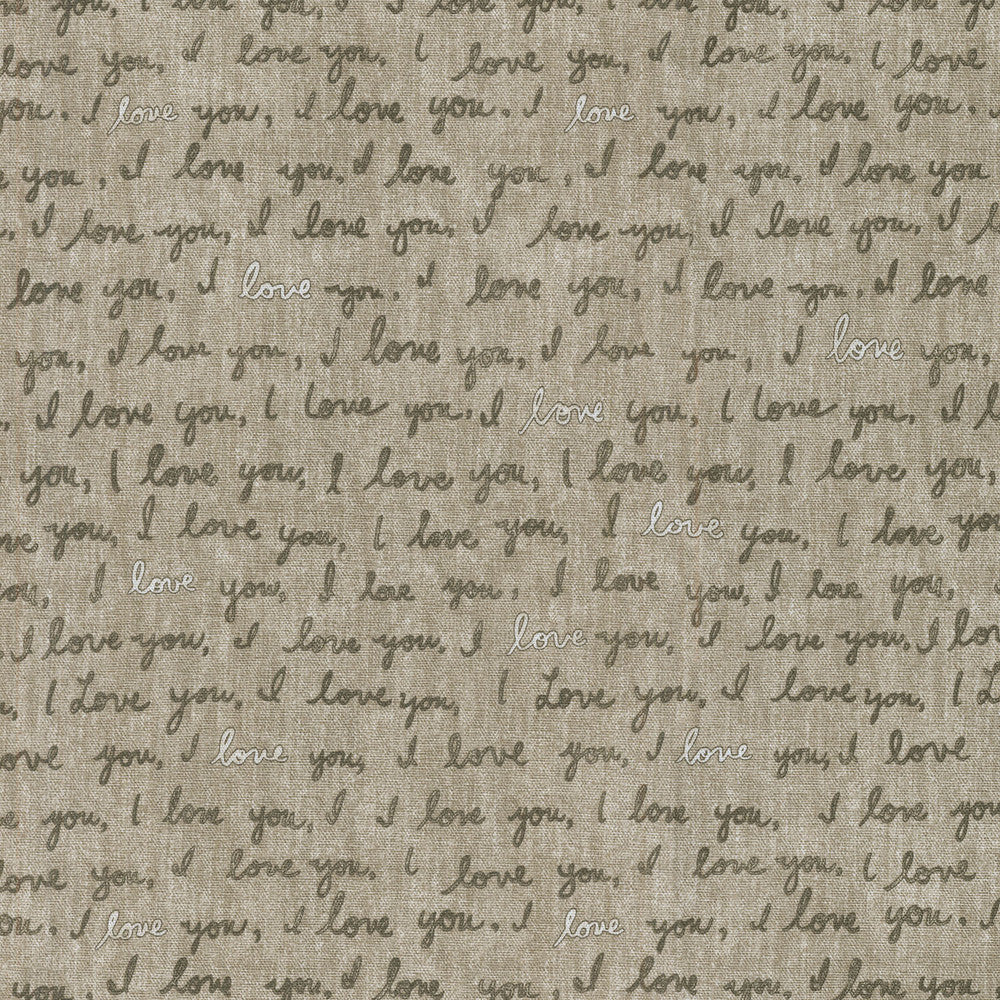 you, I love you, I I love you, I love you, I love you
love you, I love you. I love you, I love you. I love
you. I love you, I love you. I love you, I love you.
you, I love you. I love you, I love you. I love you
I love you, I love you, I love you, I love you. I
love you, I love you. I love you, I love you. I love
you, I love you, I love you, I love you, I love you,
I love you, I love you. I love you, I love you, I
you, I love you, I love you, I love you, I love you,
you, I love you, I love you, I love you, I love you
you, I love you, I love you, I love you, I love you,
I love you, I love you. I love you, I love you. I love
I Love you, I love you, I Love you, I love you, I
love you, I love you, I love you, I love you, I love
you, I love you, I I love you, I love you, I love you
love you, I love you. I love you, I love you. I love
you. I love you, I love you. I love you, I love you.
you, I love you. I love you, I love you. I love you